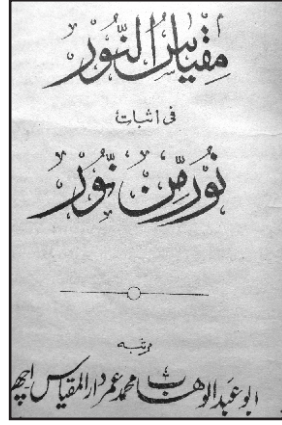 مقیاس النُّور
فی اثبات
نُور مِّن نُّور
مرتبہ
ابو عبدالوھاب محمد عمر دارالمقیاس اچھرہ